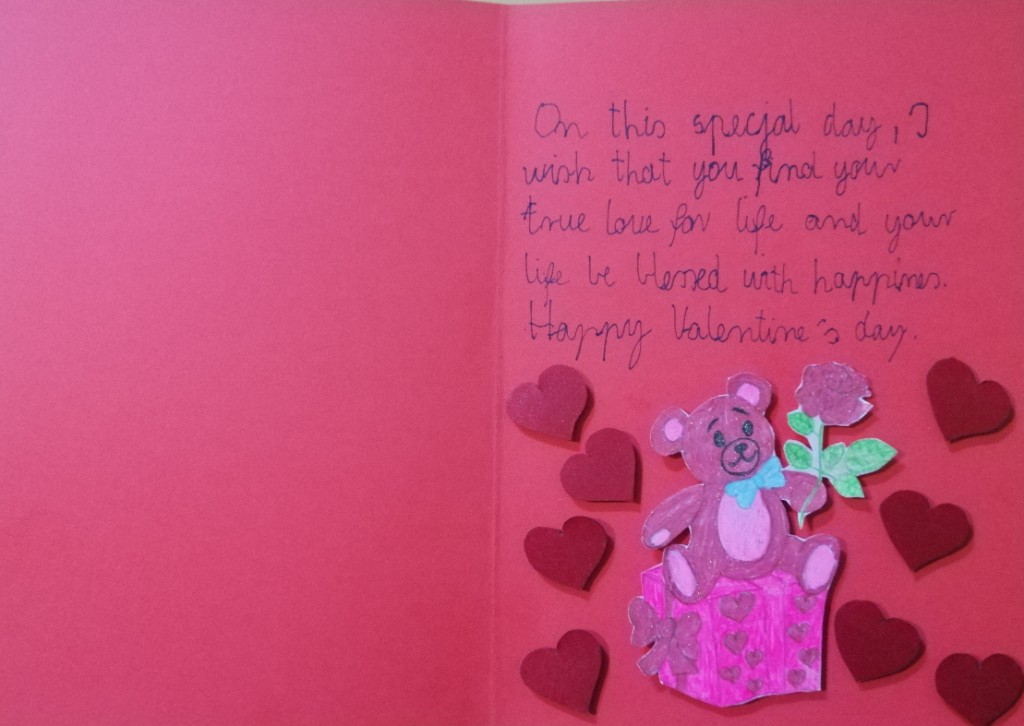 On this special day, I
wish that you find your
true love for life and your
life be blessed with happines.
Happy Valentine's day.